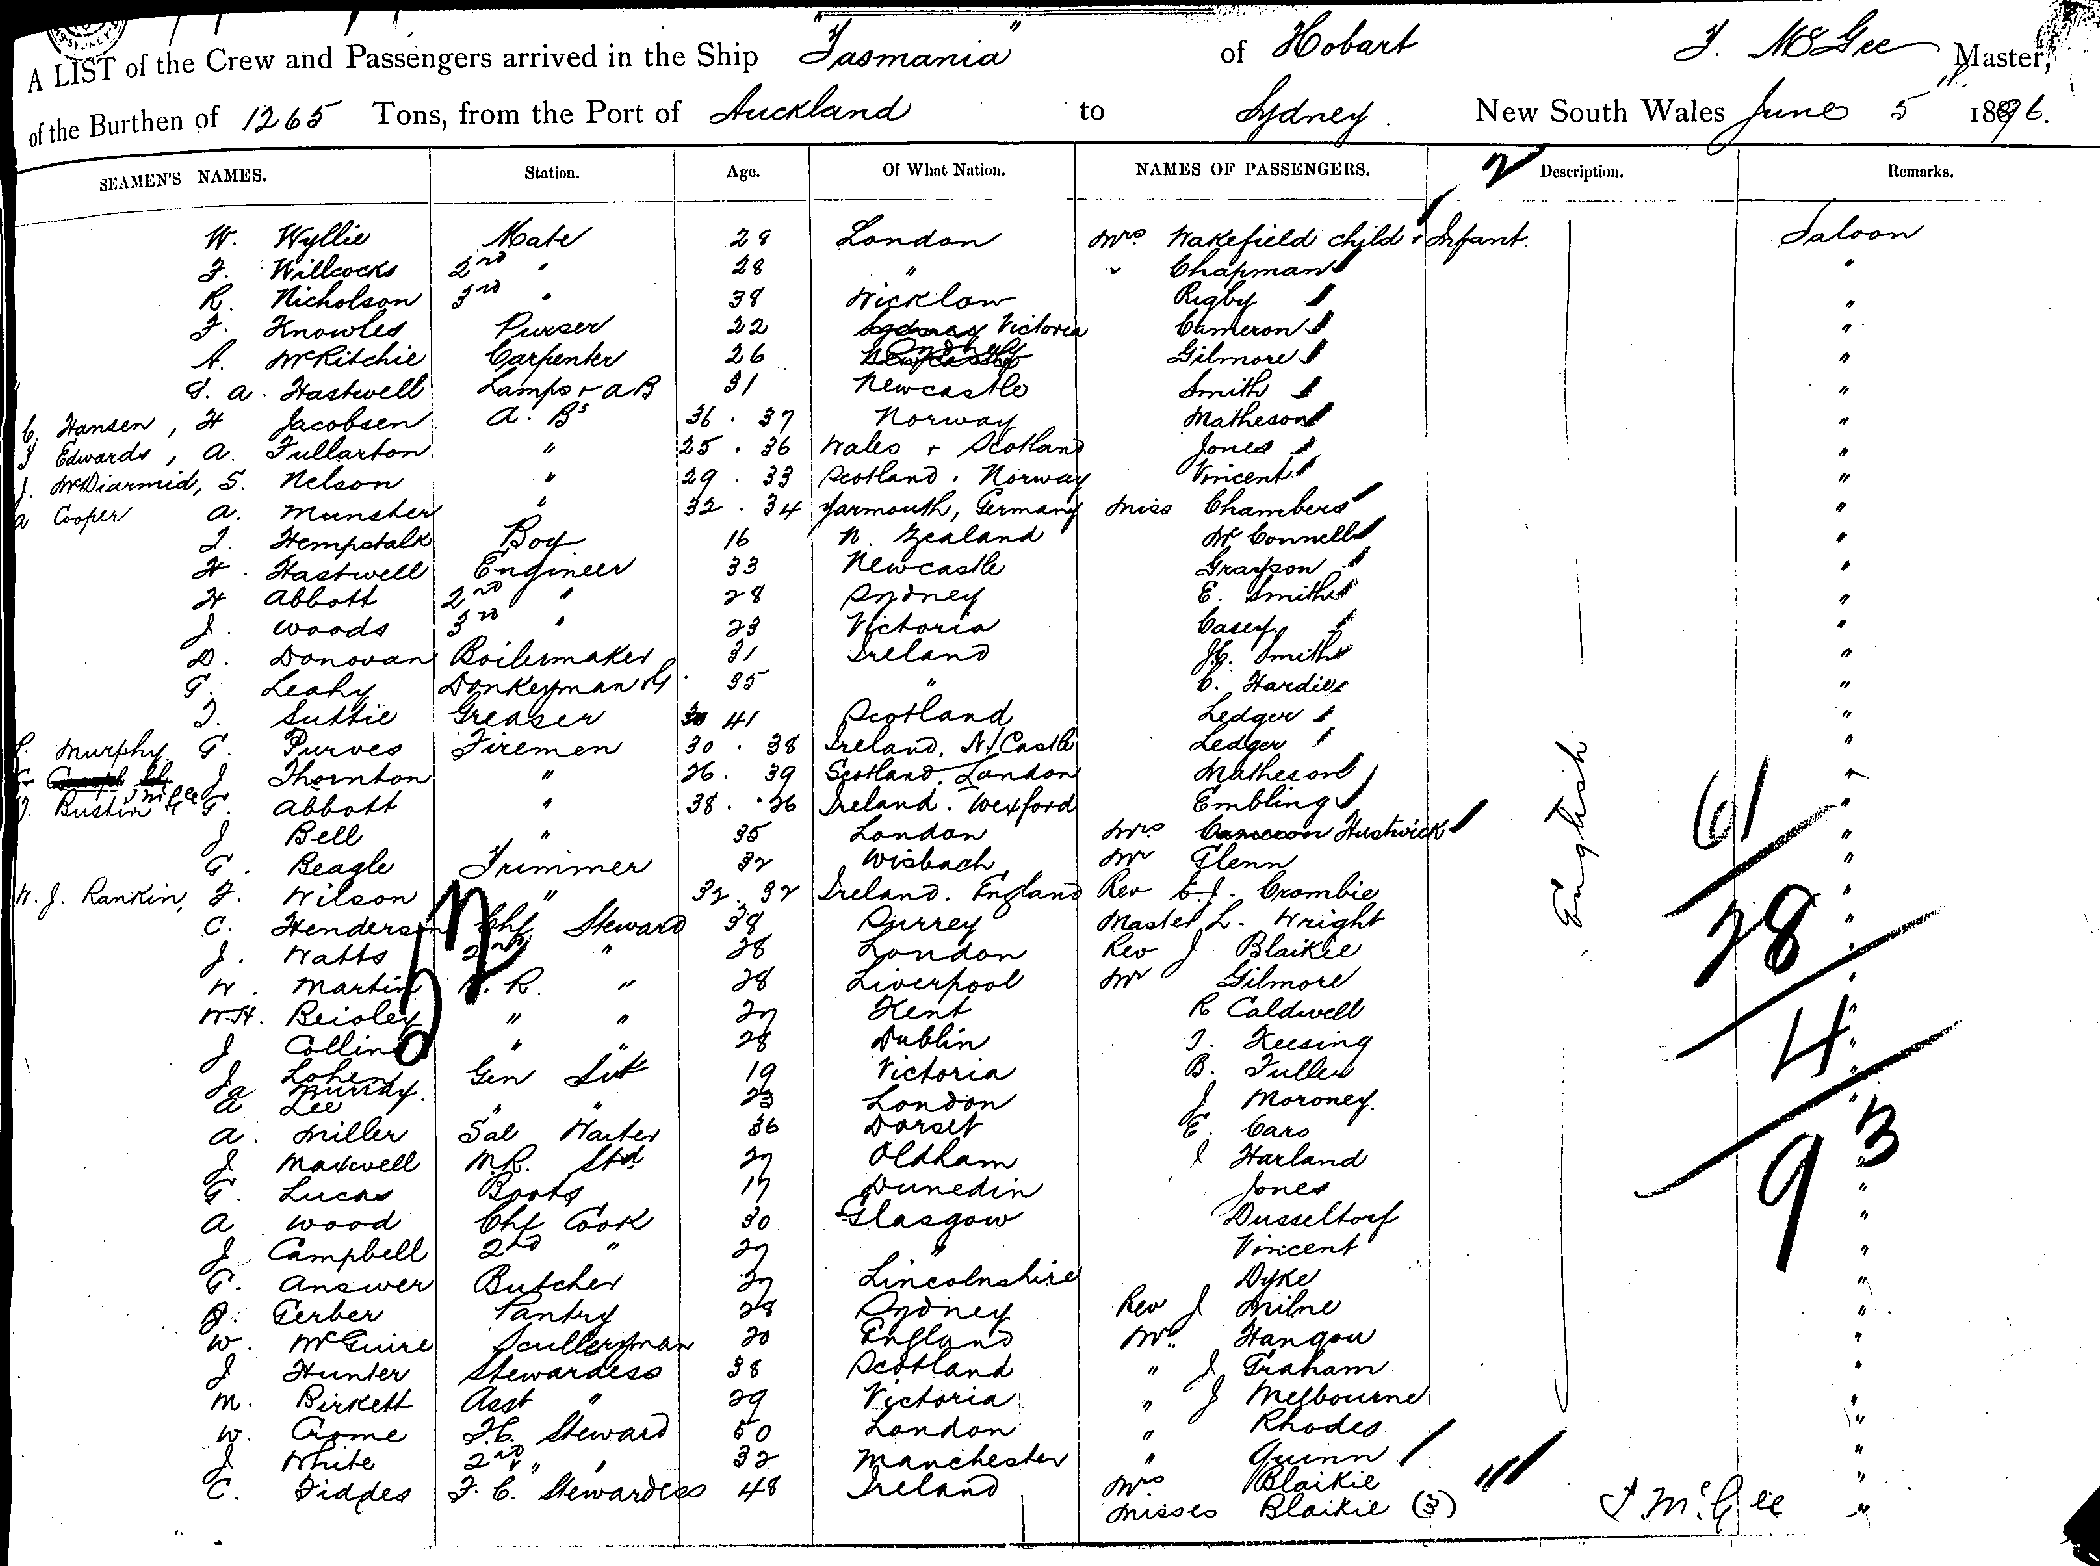 "Tasmania"
A LIST of the Crew and Passengers arrived in the Ship Tasmania of Hobart J. McGee Master,
of the Burthen of 1265 Tons, from the Port of Auckland to Sydney. New South Wales June 5 1896.
SEAMEN'S NAMES. Station. Age. Of What Nation. NAMES OF PASSENGERS. 2 Description. Remarks.
W. Wyllie Mate 28 London Mrs Wakefield child + Infant. Saloon
F. Willcocks 2nd " 28 " " Chapman "
R. Nicholson 3rd " 38 Wicklow Rigby "
F. Knowles Purser 22 Sydney Victoria Cameron "
A. McRitchie Carpenter 26 Newcastle Sydney Gilmore "
G. A. Hastwell Lamps + AB 31 Newcastle Smith "
C. Hansen, H Jacobsen A. Bs 36 . 37 Norway Matheson "
J Edwards, A. Fullarton " 25 . 36 Wales + Scotland Jones "
J. McDiarmid, S. Nelson " 29 . 33 Scotland. Norway Vincent "
A Cooper A. Munster " 32 . 34 Yarmouth, Germany Miss Chambers "
T. Hempstalk Boy 16 N. Zealand McConnell "
H. Hastwell Engineer 33 Newcastle Grayson "
H Abbott 2nd " 28 Sydney E. Smith "
J. Woods 3rd " 23 Victoria Casey "
D. Donovan Boilermaker 31 Ireland Smith "
G. Leahy Donkeyman 35 " C. Hardie "
T. Suttie Greaser 41 Scotland Ledger "
Murphy G. Purves Firemen 30 . 38 Ireland. N/Castle Ledger "
J McGee J Thornton " 26 . 39 Scotland. London Matheson "
Bustin G. Abbott " 38 . 26 Ireland. Wexford Embling "
J Bell " 35 London Mrs Cameron Hustwick "
G. Beagle Trimmer 32 Wisbach Mr Glenn "
W. J. Rankin, F. Wilson " 32 . 32 Ireland. England Rev C. J. Crombie "
C. Henderson Chf Steward 38 Surrey Master L. Wright "
J. Watts 2nd " 28 London Rev J Blaikie "
W. Martin " 28 Liverpool Mr Gilmore "
W.H. Beisley " " 27 Kent R Caldwell "
J Collins " " 28 Dublin T. Keesing "
J Cohen Gen Svt 19 Victoria B. Fuller "
Murray.
A Lee " " 23 London J Moroney. "
A. Miller Sal Waiter 36 Dorset E. Caro
J. Maxwell M.R. Std 27 Oldham J Harland "
G. Lucas Boots 17 Dunedin Jones "
A Wood Chf Cook 30 Glasgow Dusseldorf "
J Campbell 2nd " 27 " Vincent "
G. Answer Butcher 27 Lincolnshire Dyke "
J. Gerber Pantry 28 Sydney Rev J Milne "
W. McGuire Sculleryman 20 England Mr. Hangou "
J Hunter Stewardess 38 Scotland " J Graham "
M. Birkett Asst " 29 Victoria " J Melbourne "
W. Crome F.C. Steward 50 London " Rhodes "
J. White 2nd " " 32 Manchester " Quinn "
C. Fiddes F. C. Stewardess 48 Ireland Mrs Blaikie "
Misses Blaikie (3) J McGee "
English
61
28
4
93